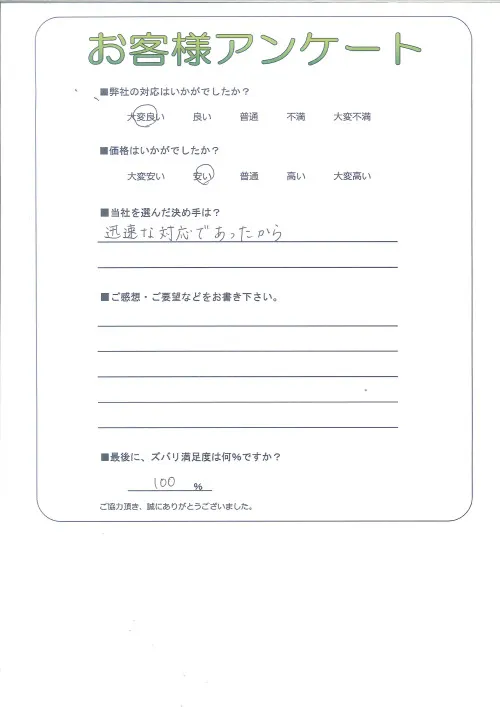 お客様アンケート
■弊社の対応はいかがでしたか？
大変良い 良い 普通 不満 大変不満
■価格はいかがでしたか？
大変安い 安い 普通 高い 大変高い
■当社を選んだ決め手は？
迅速な対応であったから
■ご感想・ご要望などをお書き下さい。
■最後に、ズバリ満足度は何％ですか？
100 ％
ご協力頂き、誠にありがとうございました。